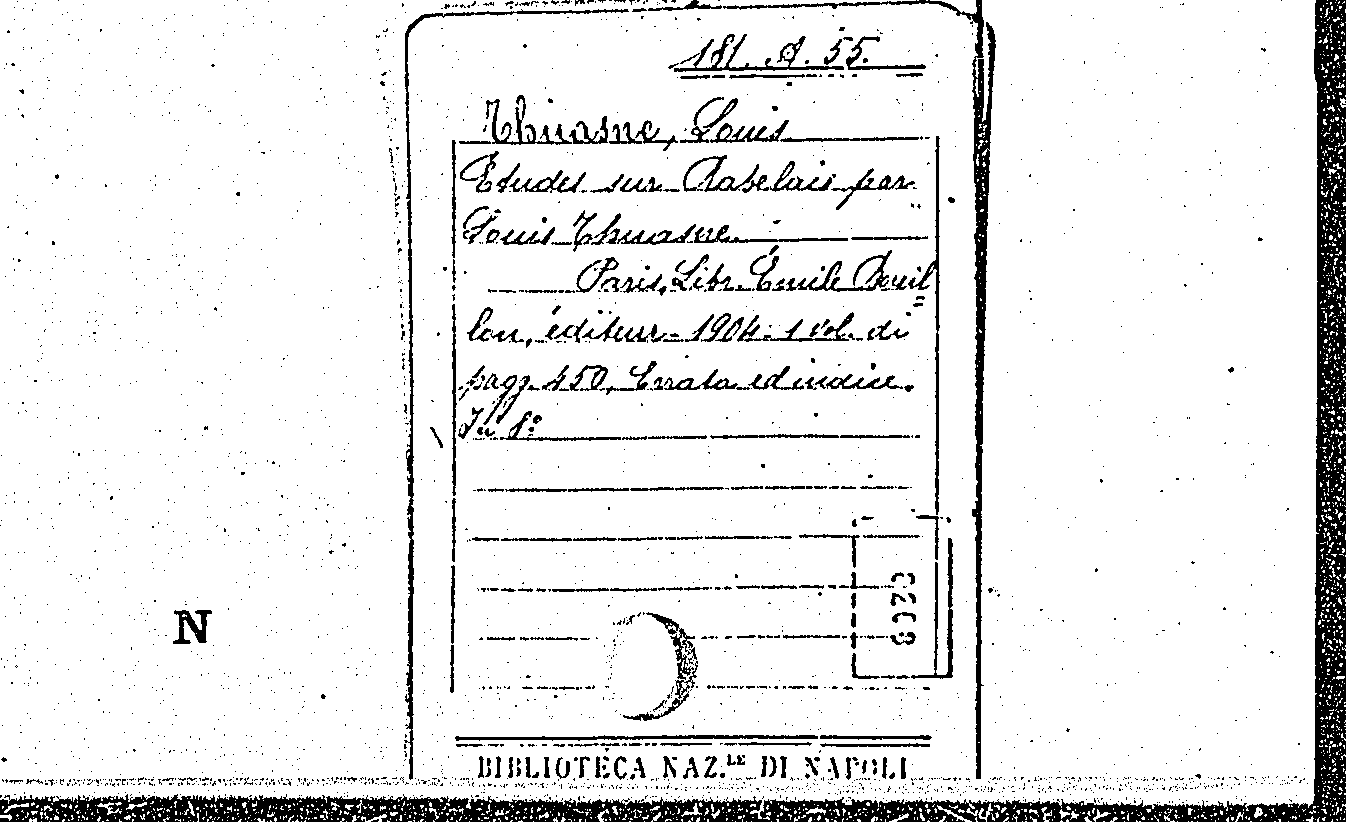 181. A. 55.
Thuasne, Louis
Études sur Rabelais par
Louis Thuasne.
Paris, Libr. Émile Bouil=
lon, éditeur - 1904. 1 vol. di
pagg. 450, Errata ed indice.
In 8º
N
BIBLIOTECA NAZ.LE DI NAPOLI